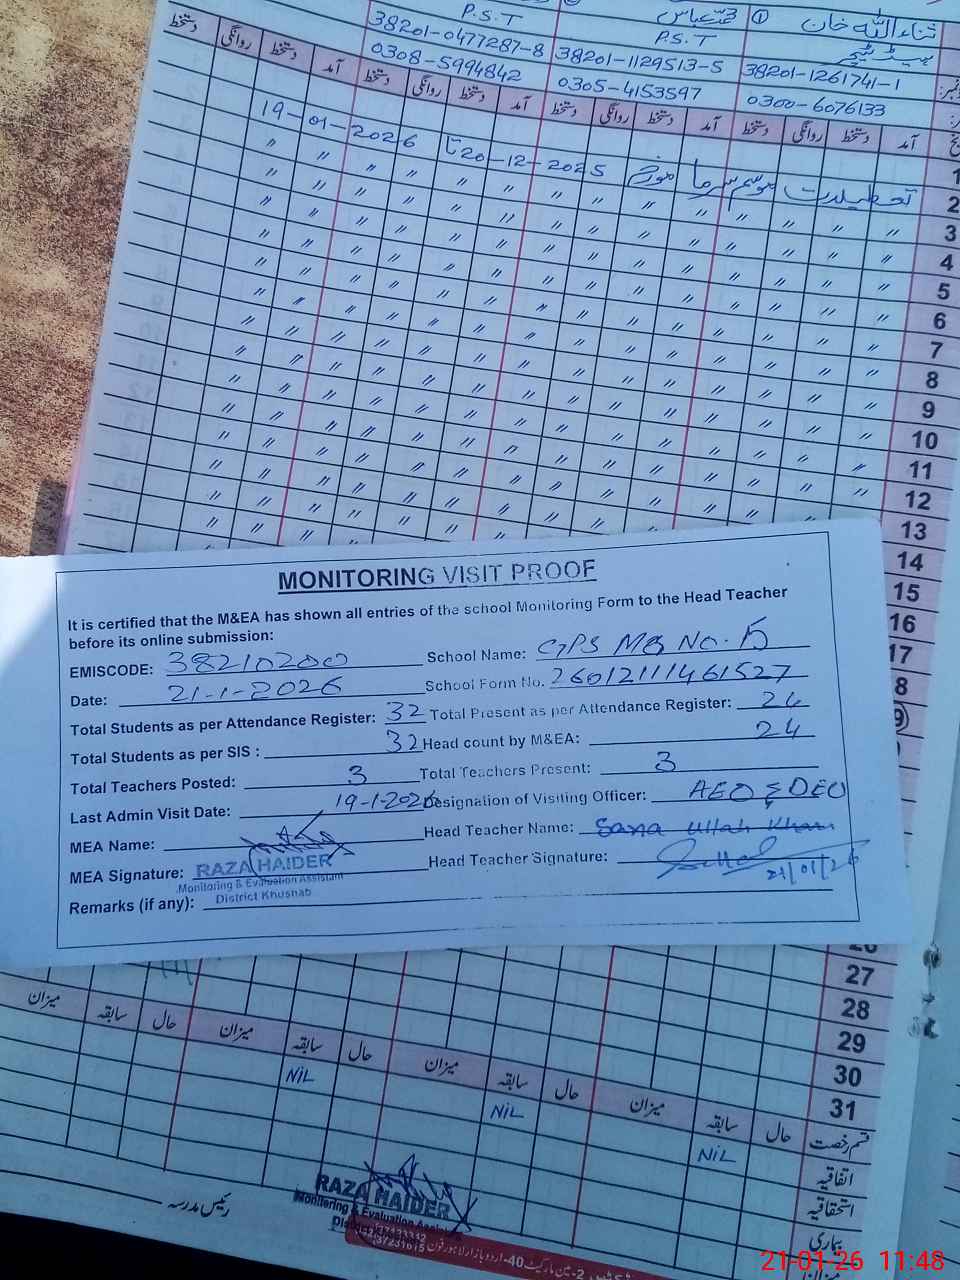 ثناء اللہ خان
ہیڈ ٹیچر
38201-1261741-1
0300-6076133
محمد عباس
P.S.T
38201-1129513-5
0305-4153597
P.S.T
38201-0477287-8
0308-5994842
آمد دستخط روانگی دستخط آمد دستخط روانگی دستخط آمد دستخط روانگی دستخط آمد دستخط روانگی دستخط
1
2 تعطیلات موسم سرما مورخہ 20-12-2025 تا 19-01-2026
3
4
5
6
7
8
9
10
11
12
13
14
15
16
17
8
9
MONITORING VISIT PROOF
It is certified that the M&EA has shown all entries of the school Monitoring Form to the Head Teacher
before its online submission:
EMISCODE: 38210200 School Name: GPS MB No. 15
Date: 21-1-2026 School Form No. 26012111461527
Total Students as per Attendance Register: 32 Total Present as per Attendance Register: 24
Total Students as per SIS : 32 Head count by M&EA: 24
Total Teachers Posted: 3 Total Teachers Present: 3
Last Admin Visit Date: 19-1-2026 Designation of Visiting Officer: AEO & DEO
MEA Name: Head Teacher Name: Sana Ullah Khan
MEA Signature: RAZA HAIDER Head Teacher Signature: 21/01/26
Monitoring & Evaluation Assistant
District Khushab
Remarks (if any):
26
27
28
29
30
31
قسم رخصت حال سابقہ میزان حال سابقہ میزان حال سابقہ میزان حال سابقہ میزان
اتفاقیہ NiL NiL NiL
استحقاقیہ
بیماری
میزان
رئیس مدرسہ
RAZA HAIDER
Monitoring & Evaluation Assist
21-01-26 11:48